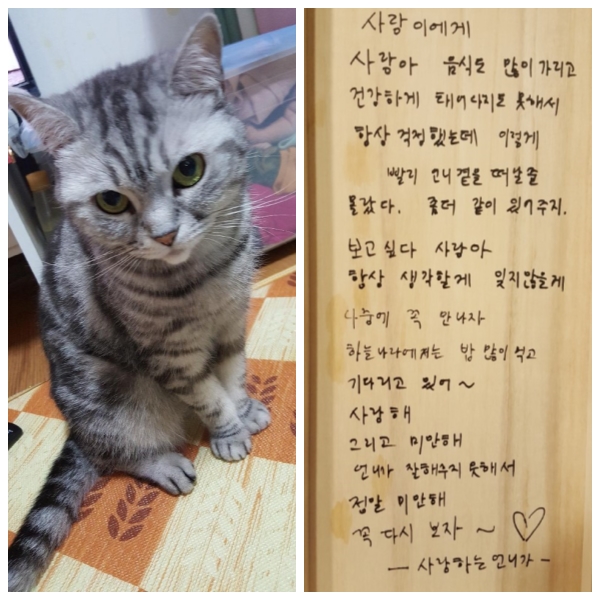 사랑이에게
사랑아 음식도 많이 가리고
건강하게 태어나지도 못해서
항상 걱정했는데 이렇게
빨리 언니 곁을 떠날줄
몰랐다. 좀더 같이 있어주지.
보고싶다 사랑아
항상 생각할게 잊지않을게
나중에 꼭 만나자
하늘나라에서는 밥 많이 먹고
기다리고 있어~
사랑해
그리고 미안해
언니가 잘해주지 못해서
정말 미안해
꼭 다시 보자 ~ ♡
— 사랑하는 언니가 —